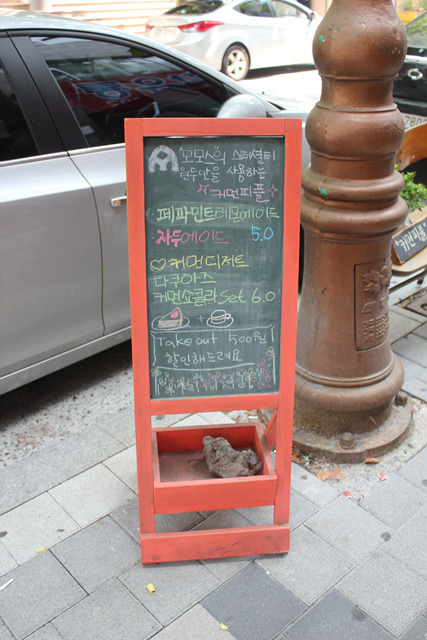 "모모스"의 스페셜티
원두만을 사용하는
커먼피플
페파민트레몬에이드
자두에이드 5.0
♡커먼디저트
다쿠아즈
커먼쇼콜라 set 6.0
+
Take out 500원
할인해드려요
커먼피플